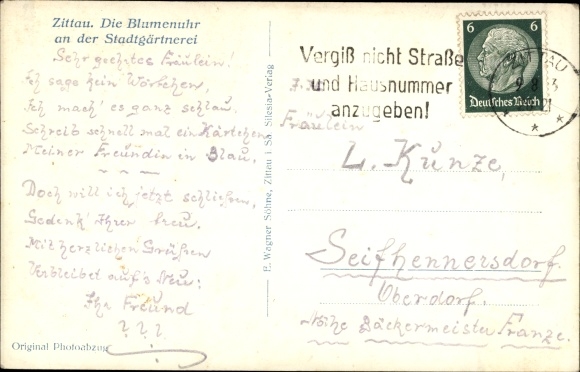 Zittau. Die Blumenuhr
an der Stadtgärtnerei
Sehr geehrtes Fräulein!
Ich sage kein Wörtchen,
Ich mach' es ganz schlau.
Schreib schnell mal ein Kärtchen
Meiner Freundin in Blau.
Doch will ich jetzt schließen,
Gedenk' Ihrer treu.
Mit herzlichen Grüßen
Verbleibet auf's Neu:
Ihr Freund
? ? ?
Original Photoabzug
E. Wagner Söhne, Zittau i. Sa. Silesia-Verlag
Vergiß nicht Straße
und Hausnummer
anzugeben!
6 6
Deutsches Reich
ZITTAU
Fräulein
L. Kunze,
Seifhennersdorf.
Oberdorf.
Nähe Bäckermeister Franze.